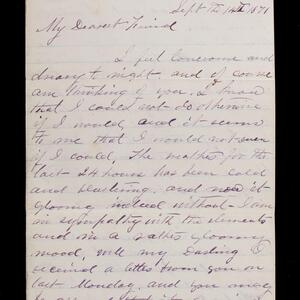 Sept the 14th 1871
My Dearest Friend
I feel lonesome and
dreary to night and of course
am thinking of you. I know
that I could not do otherwise
if I would, and it seems
to me that I would not even
if I could, The weather for the
last 24 hours has been cold
and blustering. and now it
gloomy indeed without - I am
in sympathy with the elements
and in a rather gloomy
mood, well my Darling I
received a letter from you on
last Monday, and you may